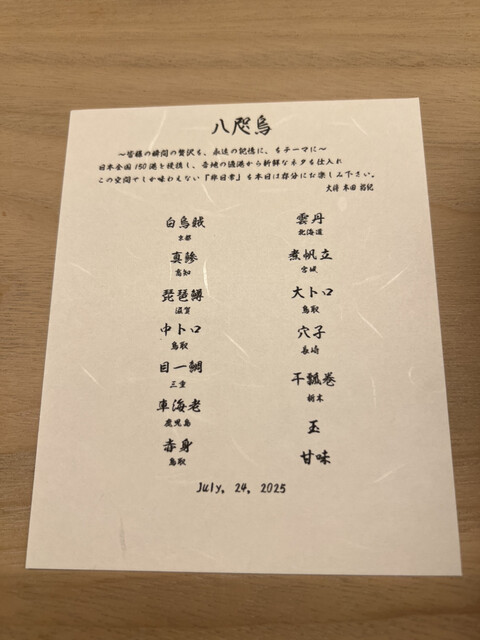 八咫烏
〜皆様の瞬間の贅沢を、永遠の記憶に、をテーマに〜
日本全国150港と提携し、各地の漁港から新鮮なネタを仕入れ
この空間でしか味わえない『非日常』を本日は存分にお楽しみ下さい。
大将 本田 裕紀
白烏賊
京都
真鯵
高知
琵琶鱒
滋賀
中トロ
鳥取
目一鯛
三重
車海老
鹿児島
赤身
鳥取
雲丹
北海道
煮帆立
宮城
大トロ
鳥取
穴子
長崎
干瓢巻
栃木
玉
甘味
July, 24, 2025